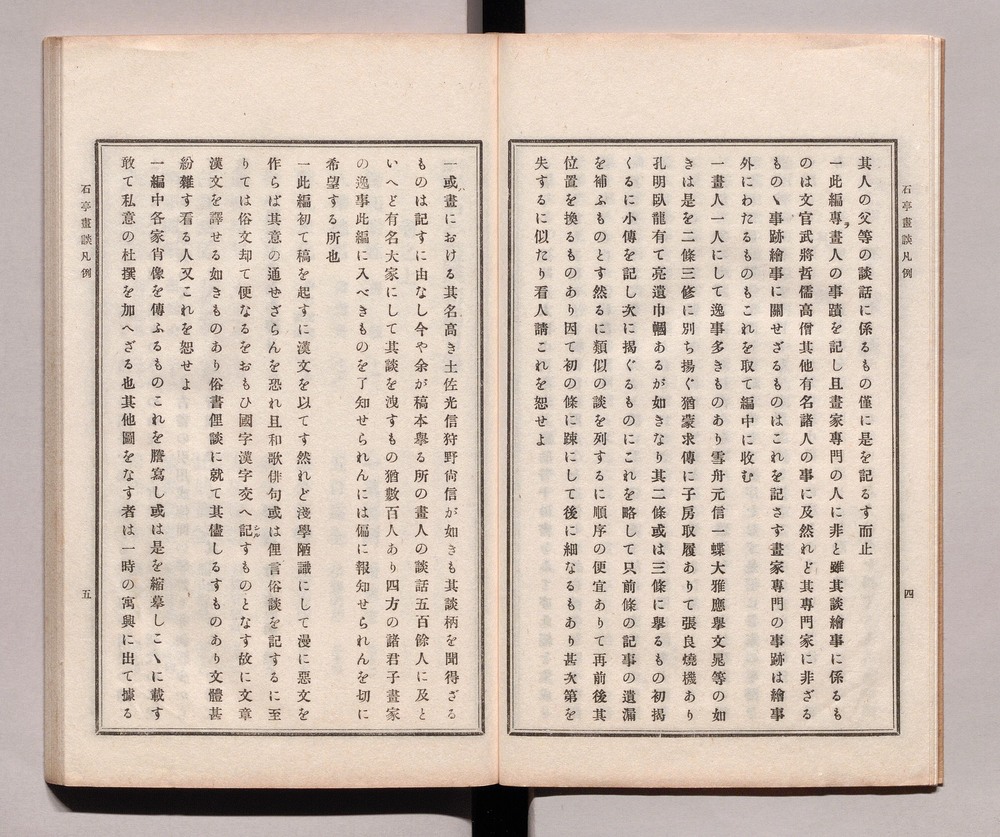 石亭畫談凡例
四
其人の父等の談話に係るもの僅に是を記るす而止
一此編專ヲ畫人の事蹟を記し且畫家專門の人に非と雖其談繪事に係るも
のは文官武將哲儒高僧其他有名諸人の事に及然れど其專門家に非ざる
ものゝ事跡繪事に關せざるものはこれを記さす畫家專門の事跡は繪事
外にわたるものもこれを取て編中に收む
一畫人一人にして逸事多きものあり雪舟元信一蝶大雅應擧文晁等の如
きは是を二條三修に別ち揚ぐ猶蒙求傳に子房取履ありて張良燒機あり
孔明臥龍有て亮遺巾幗あるが如きなり其二條或は三條に擧るもの初揭
くるに小傳を記し次に揭ぐるものにこれを略して只前條の記事の遺漏
を補ふものとす然るに類似の談を列するに順序の便宜ありて再前後其
位置を換るものあり因て初の條に踈にして後に細なるもあり甚次第を
失するに似たり看人請これを恕せよ
一或畫における其名高き土佐光信狩野尙信が如きも其談柄を聞得ざる
ものは記すに由なし今や余が稿本擧る所の畫人の談話五百餘人に及と
いへど有名大家にして其談を洩すもの猶數百人あり四方の諸君子畫家
の逸事此編に入べきものを了知せられんには偏に報知せられんを切に
希望する所也
一此編初て稿を起すに漢文を以てす然れど淺學陋識にして漫に惡文を
作らば其意の通せざらんを恐れ且和歌俳句或は俚言俗談を記するに至
りては俗文却て便なるをおもひ國字漢字交へ記シルすものとなす故に文章
漢文を譯せる如きものあり俗書俚談に就て其儘しるすものあり文體甚
紛雜す看る人又これを恕せよ
一編中各家肖像を傳ふるものこれを謄寫し或は是を縮摹しこゝに載す
敢て私意の杜撰を加へざる也其他圖をなす者は一時の寓興に出て據る
石亭畫談凡例
五